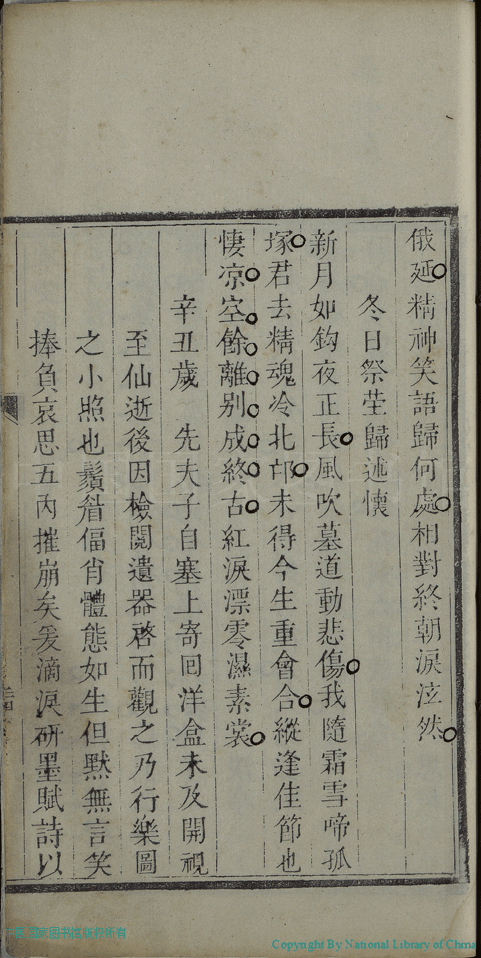 俄延精神笑語歸何處相對終朝淚泫然
冬日祭塋歸述懷
新月如鈎夜正長風吹墓道動悲傷我隨霜雪啼孤
塚君去精魂冷北邙未得今生重會合縱逢佳節也
悽凉空餘離别成終古紅淚漂零濕素裳
辛丑歲 先夫子自塞上寄回洋盒未及開視
至仙逝後因檢閱遺器啓而觀之乃行樂圖
之小照也鬚眉偪肖體態如生但默無言笑
捧負哀思五內摧崩矣爰滴淚研墨賦詩以
中国国家图书馆版权所有
Copyright By National Library of China